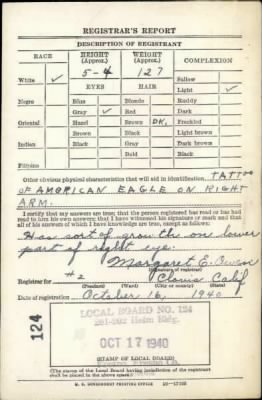 REGISTRAR'S REPORT
DESCRIPTION OF REGISTRANT
RACE HEIGHT (Approx.) WEIGHT (Approx.) COMPLEXION
5-4 127
White ✓ Sallow
EYES HAIR Light ✓
Negro Blue Blonde Ruddy
Gray ✓ Red Dark
Oriental Hazel Brown DK. Freckled
Brown Black Light brown
Indian Black Gray Dark brown
Bald Black
Filipino
Other obvious physical characteristics that will aid in identification TATTOO
OF AMERICAN EAGLE ON RIGHT
ARM.
I certify that my answers are true; that the person registered has read or has had
read to him his own answers; that I have witnessed his signature or mark and that
all of his answers of which I have knowledge are true, except as follows:
Has sort of growth on lower
part of right eye.
Margaret E. Owen
(Signature of registrar)
Registrar for #2 Clovis Calif
(Precinct) (Ward) (City or county) (State)
Date of registration October 16, 1940
124
LOCAL BOARD NO. 124
Helm Bldg.
OCT 17 1940
(STAMP OF LOCAL BOARD)
(The stamp of the Local Board having jurisdiction of the registrant
shall be placed in the above space)
U. S. GOVERNMENT PRINTING OFFICE